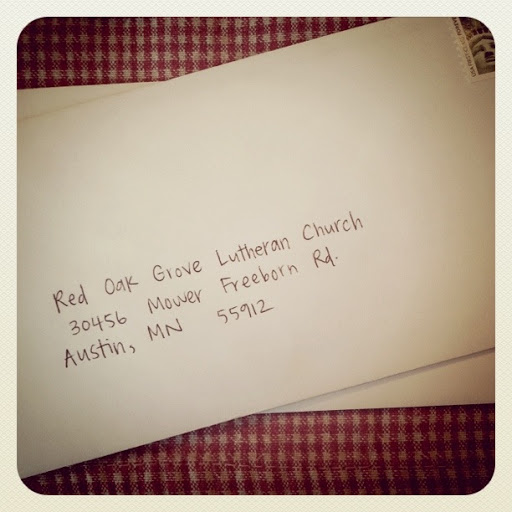 Red Oak Grove Lutheran Church
30456 Mower Freeborn Rd.
Austin, MN 55912